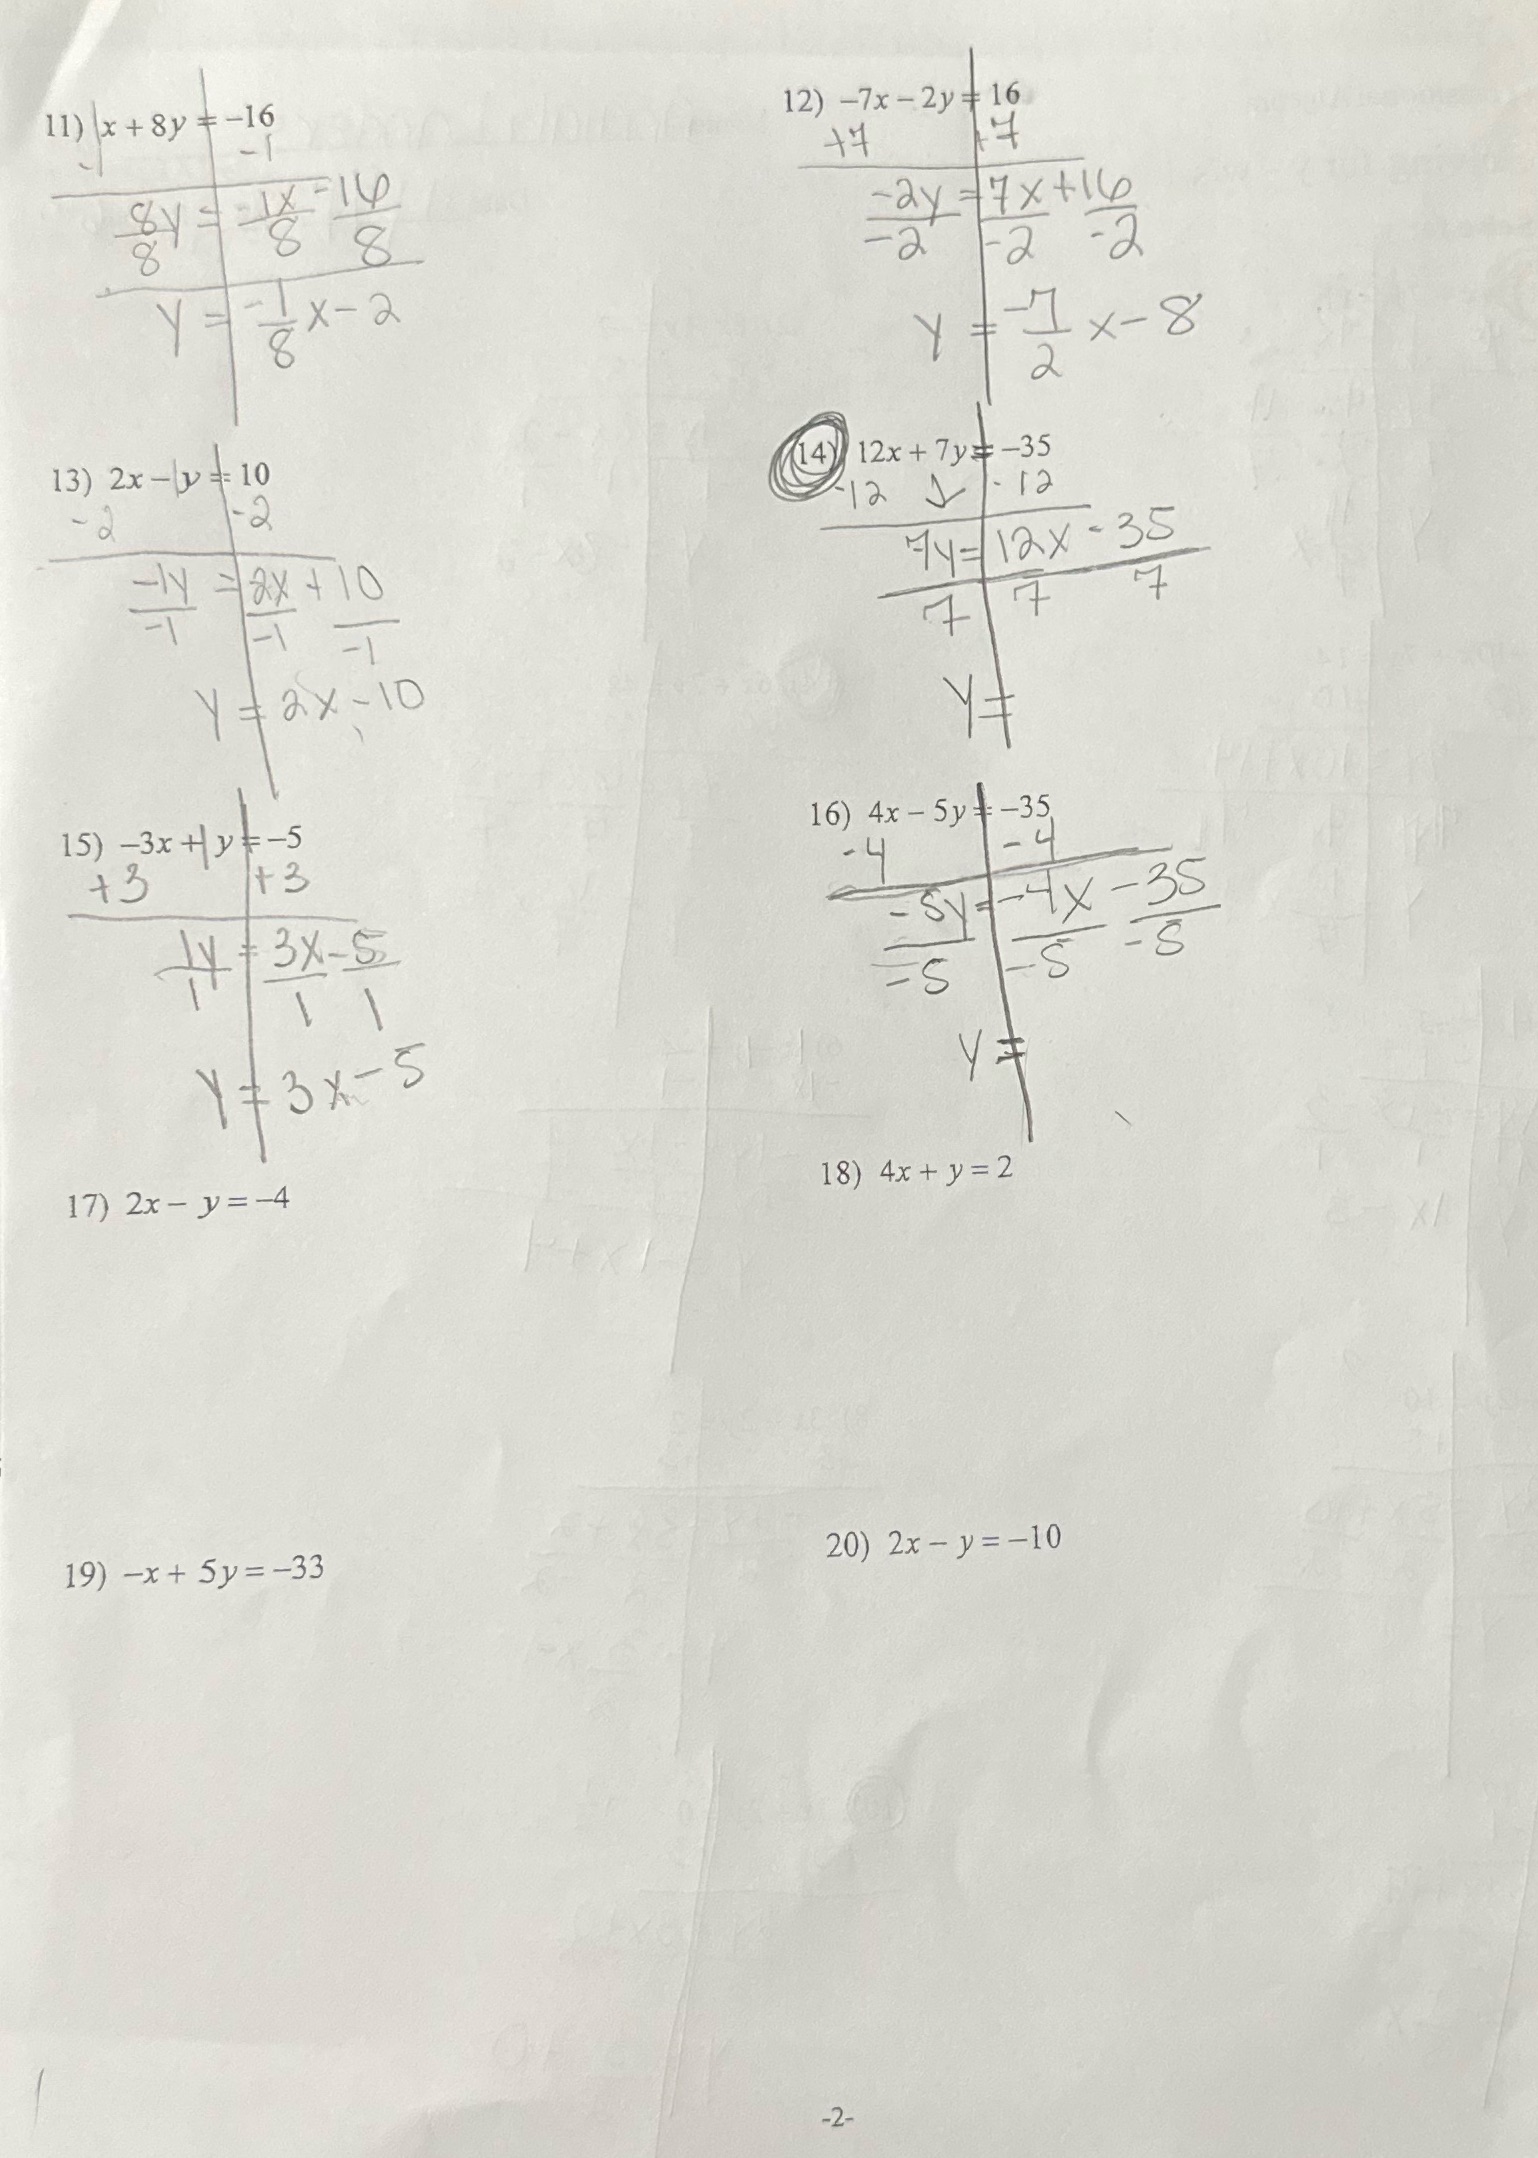 11) 1x + 8y = -16
-1 -1
8y = -1x - 16
8 8 8
y = -1/8 x - 2
12) -7x - 2y = 16
+7 +7
-2y = 7x + 16
-2 -2 -2
y = -7/2 x - 8
13) 2x - 1y = 10
-2 -2
-1y = 2x + 10
-1 -1 -1
y = 2x - 10
14) 12x + 7y = -35
-12 ↓ -12
7y = 12x - 35
7 7 7
y =
15) -3x + 1y = -5
+3 +3
1y = 3x - 5
1 1 1
y = 3x - 5
16) 4x - 5y = -35
-4 -4
-5y = -4x - 35
-5 -5 -5
y =
17) 2x - y = -4
18) 4x + y = 2
19) -x + 5y = -33
20) 2x - y = -10
-2-